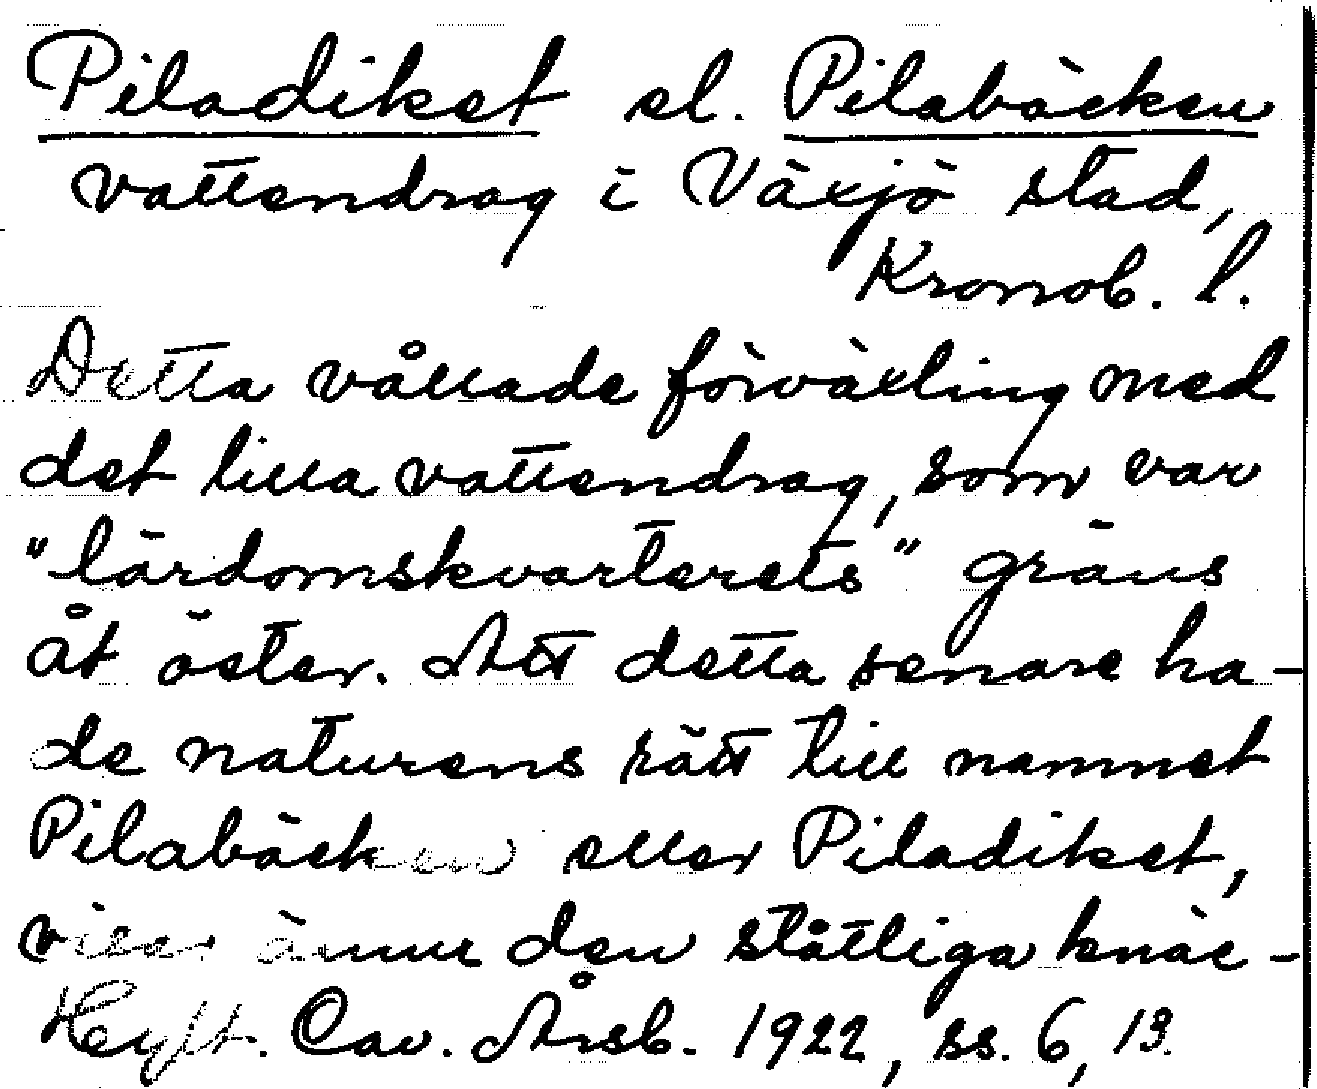 Piladiket el. Pilabäcken
vattendrag i Växjö stad,
Kronob. l.
Detta vållade förväxling med
det lilla vattendrag, som var
"lärdomskvarterets" gräns
åt öster. Att detta senare ha-
de naturens rätt till namnet
Pilabäcken eller Piladiket,
visar ännu den ståtliga knäc-
Hyft. Cav. Årsb. 1922, ss. 6, 13.